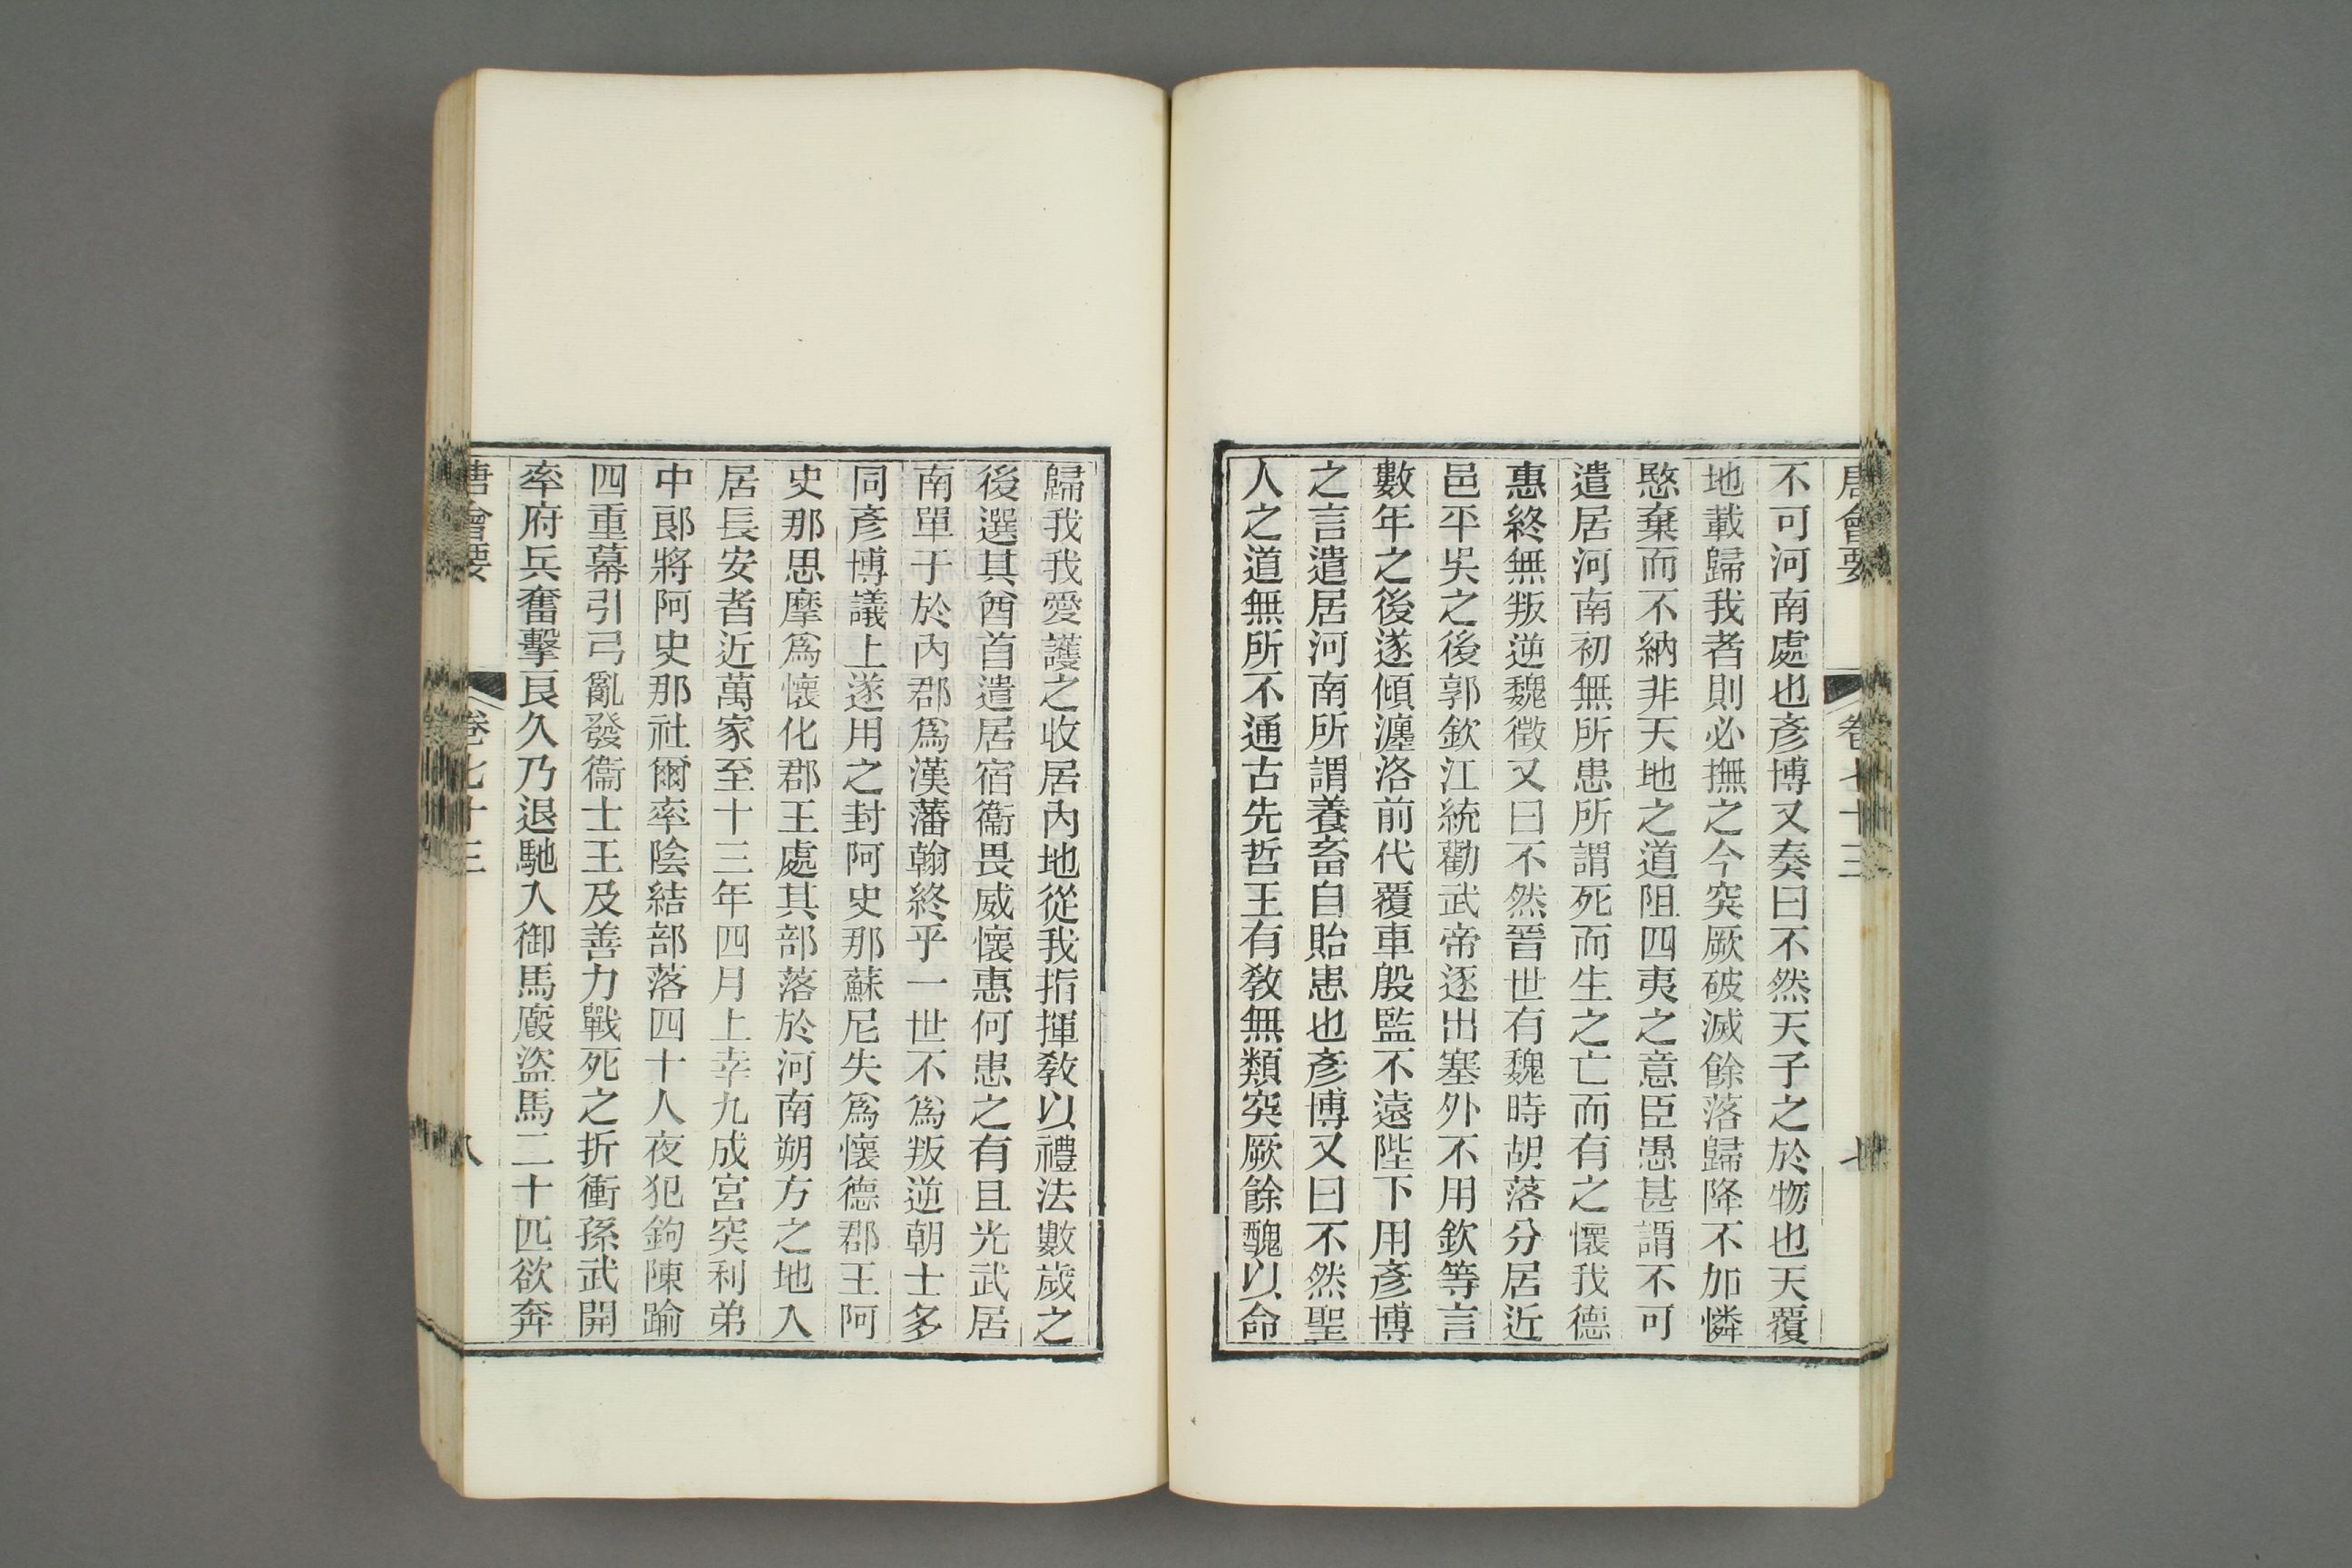 唐會要 卷七十三 七
不可河南處也彥博又奏曰不然天子之於物也天覆
地載歸我者則必撫之今突厥破滅餘落歸降不加憐
愍棄而不納非天地之道阻四夷之意臣愚甚謂不可
遣居河南初無所患所謂死而生之亡而有之懷我德
惠終無叛逆魏徵又曰不然晉世有魏時胡落分居近
邑平吳之後郭欽江統勸武帝逐出塞外不用欽等言
數年之後遂傾瀍洛前代覆車殷監不遠陛下用彥博
之言遣居河南所謂養畜自貽患也彥博又曰不然聖
人之道無所不通古先哲王有敎無類突厥餘醜以命
歸我我愛護之收居內地從我指揮敎以禮法數歲之
後選其酋首遣居宿衞畏威懷惠何患之有且光武居
南單于於內郡爲漢藩翰終乎一世不爲叛逆朝士多
同彥博議上遂用之封阿史那蘇尼失爲懷德郡王阿
史那思摩爲懷化郡王處其部落於河南朔方之地入
居長安者近萬家至十三年四月上幸九成宮突利弟
中郎將阿史那社爾率陰結部落四十人夜犯鉤陳踰
四重幕引弓亂發衞士王及善力戰死之折衝孫武開
率府兵奮擊良久乃退馳入御馬廄盜馬二十匹欲奔
唐會要 卷七十三 八